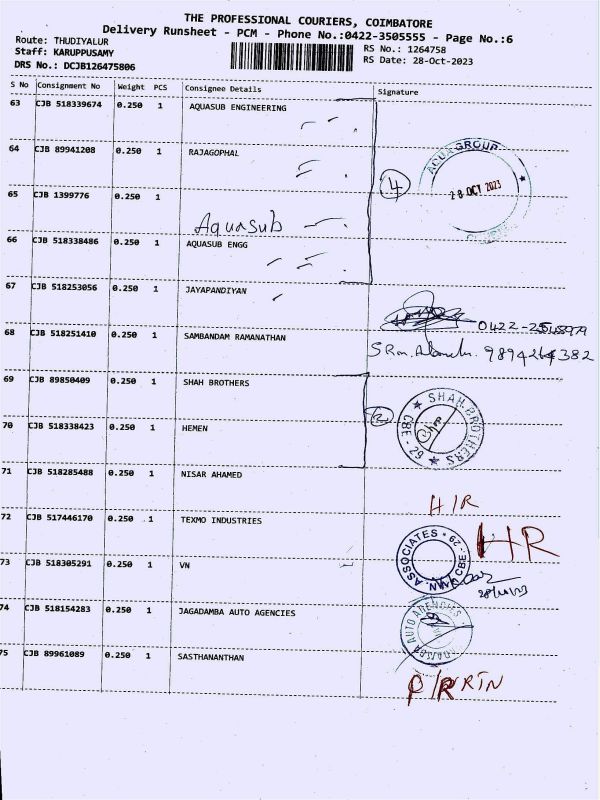 THE PROFESSIONAL COURIERS, COIMBATORE
Delivery Runsheet - PCM - Phone No.:0422-3505555 - Page No.:6
Route: THUDIYALUR
RS No.: 1264758
Staff: KARUPPUSAMY
RS Date: 28-Oct-2023
DRS No.: DCJB126475806
S No Consignment No Weight PCS Consignee Details Signature
63 CJB 518339674 0.250 1 AQUASUB ENGINEERING
64 CJB 89941208 0.250 1 RAJAGOPHAL
4
AQUAGROUP
28 OCT 2023
65 CJB 1399776 0.250 1
Aquasub
66 CJB 518338486 0.250 1 AQUASUB ENGG
67 CJB 518253056 0.250 1 JAYAPANDIYAN
68 CJB 518251410 0.250 1 SAMBANDAM RAMANATHAN
69 CJB 89850409 0.250 1 SHAH BROTHERS
2
SHAH BROTHERS
CBE - 29
70 CJB 518338423 0.250 1 HEMEN
71 CJB 518285488 0.250 1 NISAR AHAMED
H/R
72 CJB 517446170 0.250 1 TEXMO INDUSTRIES
HR
73 CJB 518305291 0.250 1 VN
ASSOCIATES
74 CJB 518154283 0.250 1 JAGADAMBA AUTO AGENCIES
AUTO AGENCIES
75 CJB 89961089 0.250 1 SASTHANANTHAN